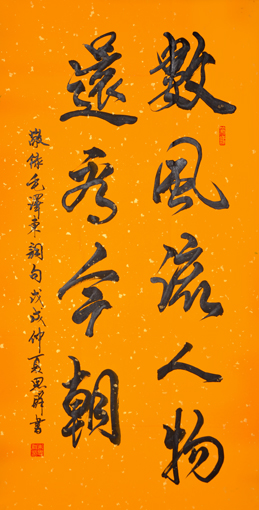 數風流人物
還秀今朝
敬錄毛澤東詞句戊戌仲夏思祥書